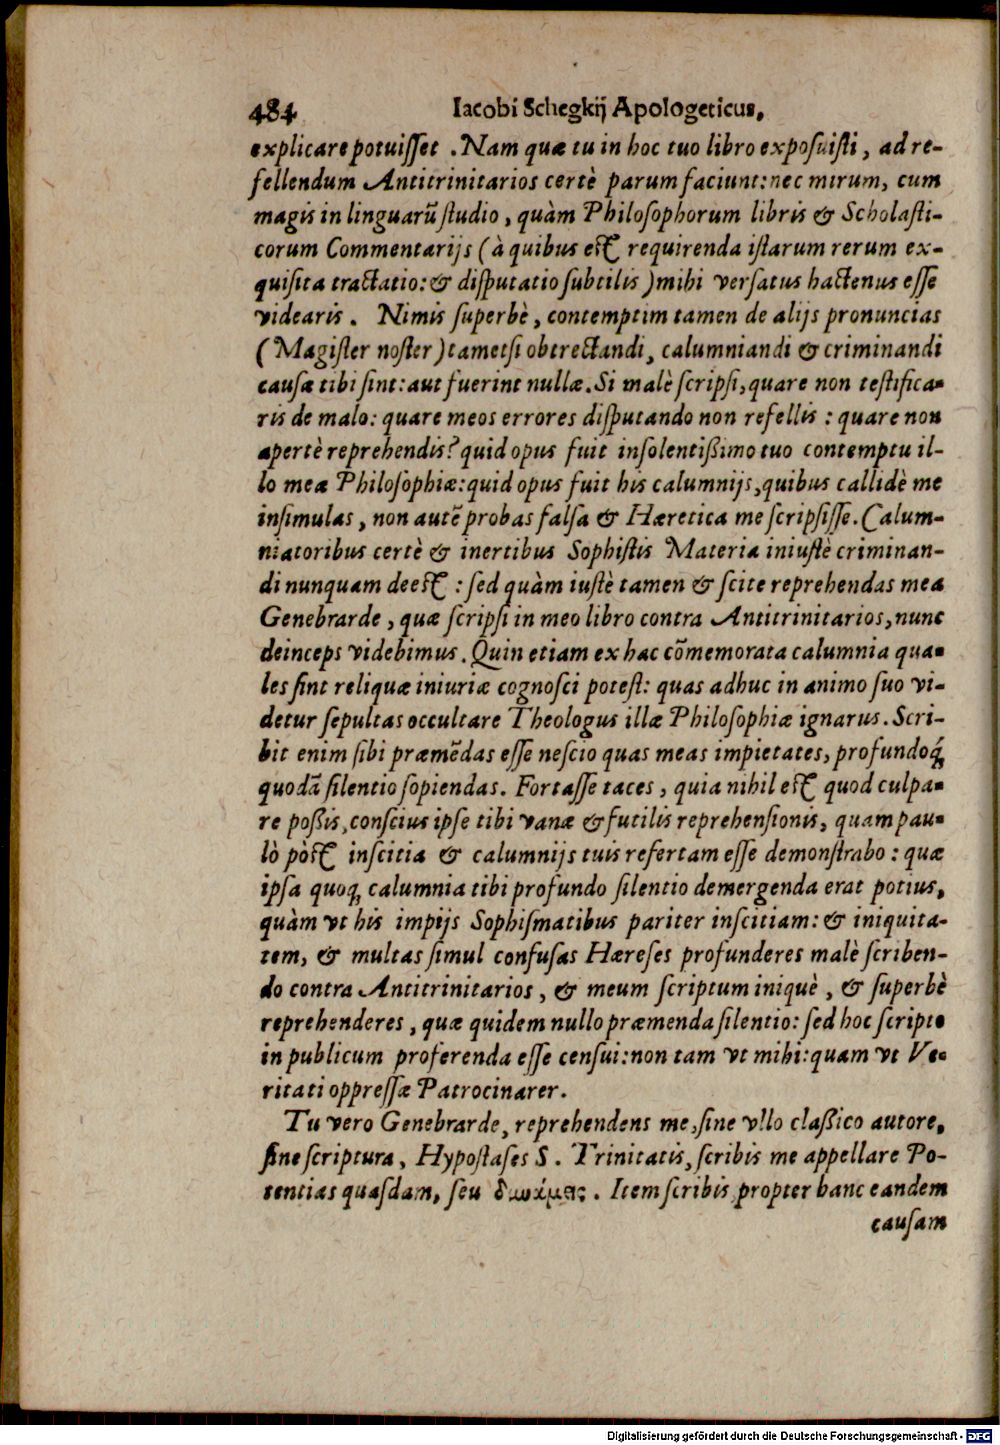 484 Iacobi Schegkij Apologeticus,
explicare potuiſſet . Nam quæ tu in hoc tuo libro expoſuiſti, ad re-
fellendum Antitrinitarios certè parum faciunt: nec mirum, cum
magis in linguarũ ſtudio, quàm Philoſophorum libris & Scholaſti-
corum Commentarijs (à quibus eſt requirenda iſtarum rerum ex-
quiſita tractatio: & diſputatio ſubtilis) mihi verſatus hactenus eſſe
videaris. Nimis ſuperbè, contemptim tamen de alijs pronuncias
(Magiſter noſter) tametſi obtrectandi, calumniandi & criminandi
cauſæ tibi ſint: aut fuerint nullæ. Si malè ſcripſi, quare non teſtifica-
ris de malo: quare meos errores diſputando non refellis: quare non
apertè reprehendis? quid opus fuit inſolentißimo tuo contemptu il-
lo meæ Philoſophiæ: quid opus fuit his calumnijs, quibus callidè me
inſimulas, non autē probas falſa & Hæretica me ſcripſiſſe. Calum-
niatoribus certè & inertibus Sophiſtis Materia iniuſtè criminan-
di nunquam deeſt: ſed quàm iuſtè tamen & ſcite reprehendas mea
Genebrarde, quæ ſcripſi in meo libro contra Antitrinitarios, nunc
deinceps videbimus. Quin etiam ex hac cõmemorata calumnia qua-
les ſint reliquæ iniuriæ cognoſci poteſt: quas adhuc in animo ſuo vi-
detur ſepultas occultare Theologus illæ Philoſophiæ ignarus. Scri-
bit enim ſibi præmẽdas eſſe neſcio quas meas impietates, profundoq́;
quodã ſilentio ſopiendas. Fortaſſe taces, quia nihil eſt quod culpa-
re poßis, conſcius ipſe tibi vanæ & futilis reprehenſionis, quam pau-
lò pòſt inſcitia & calumnijs tuis refertam eſſe demonſtrabo: quæ
ipſa quoq; calumnia tibi profundo ſilentio demergenda erat potius,
quàm vt his impijs Sophiſmatibus pariter inſcitiam: & iniquita-
tem, & multas ſimul confuſas Hæreſes profunderes malè ſcriben-
do contra Antitrinitarios, & meum ſcriptum iniquè, & ſuperbè
reprehenderes, quæ quidem nullo præmenda ſilentio: ſed hoc ſcripto
in publicum proferenda eſſe cenſui: non tam vt mihi: quam vt Ve-
ritati oppreſſæ Patrocinarer.
Tu vero Genebrarde, reprehendens me, ſine vllo claßico autore,
ſine ſcriptura, Hypoſtaſes S. Trinitatis, ſcribis me appellare Po-
tentias quaſdam, ſeu δυνάμεις. Item ſcribis propter hanc eandem
cauſam
Digitalisierung gefördert durch die Deutsche Forschungsgemeinschaft - DFG